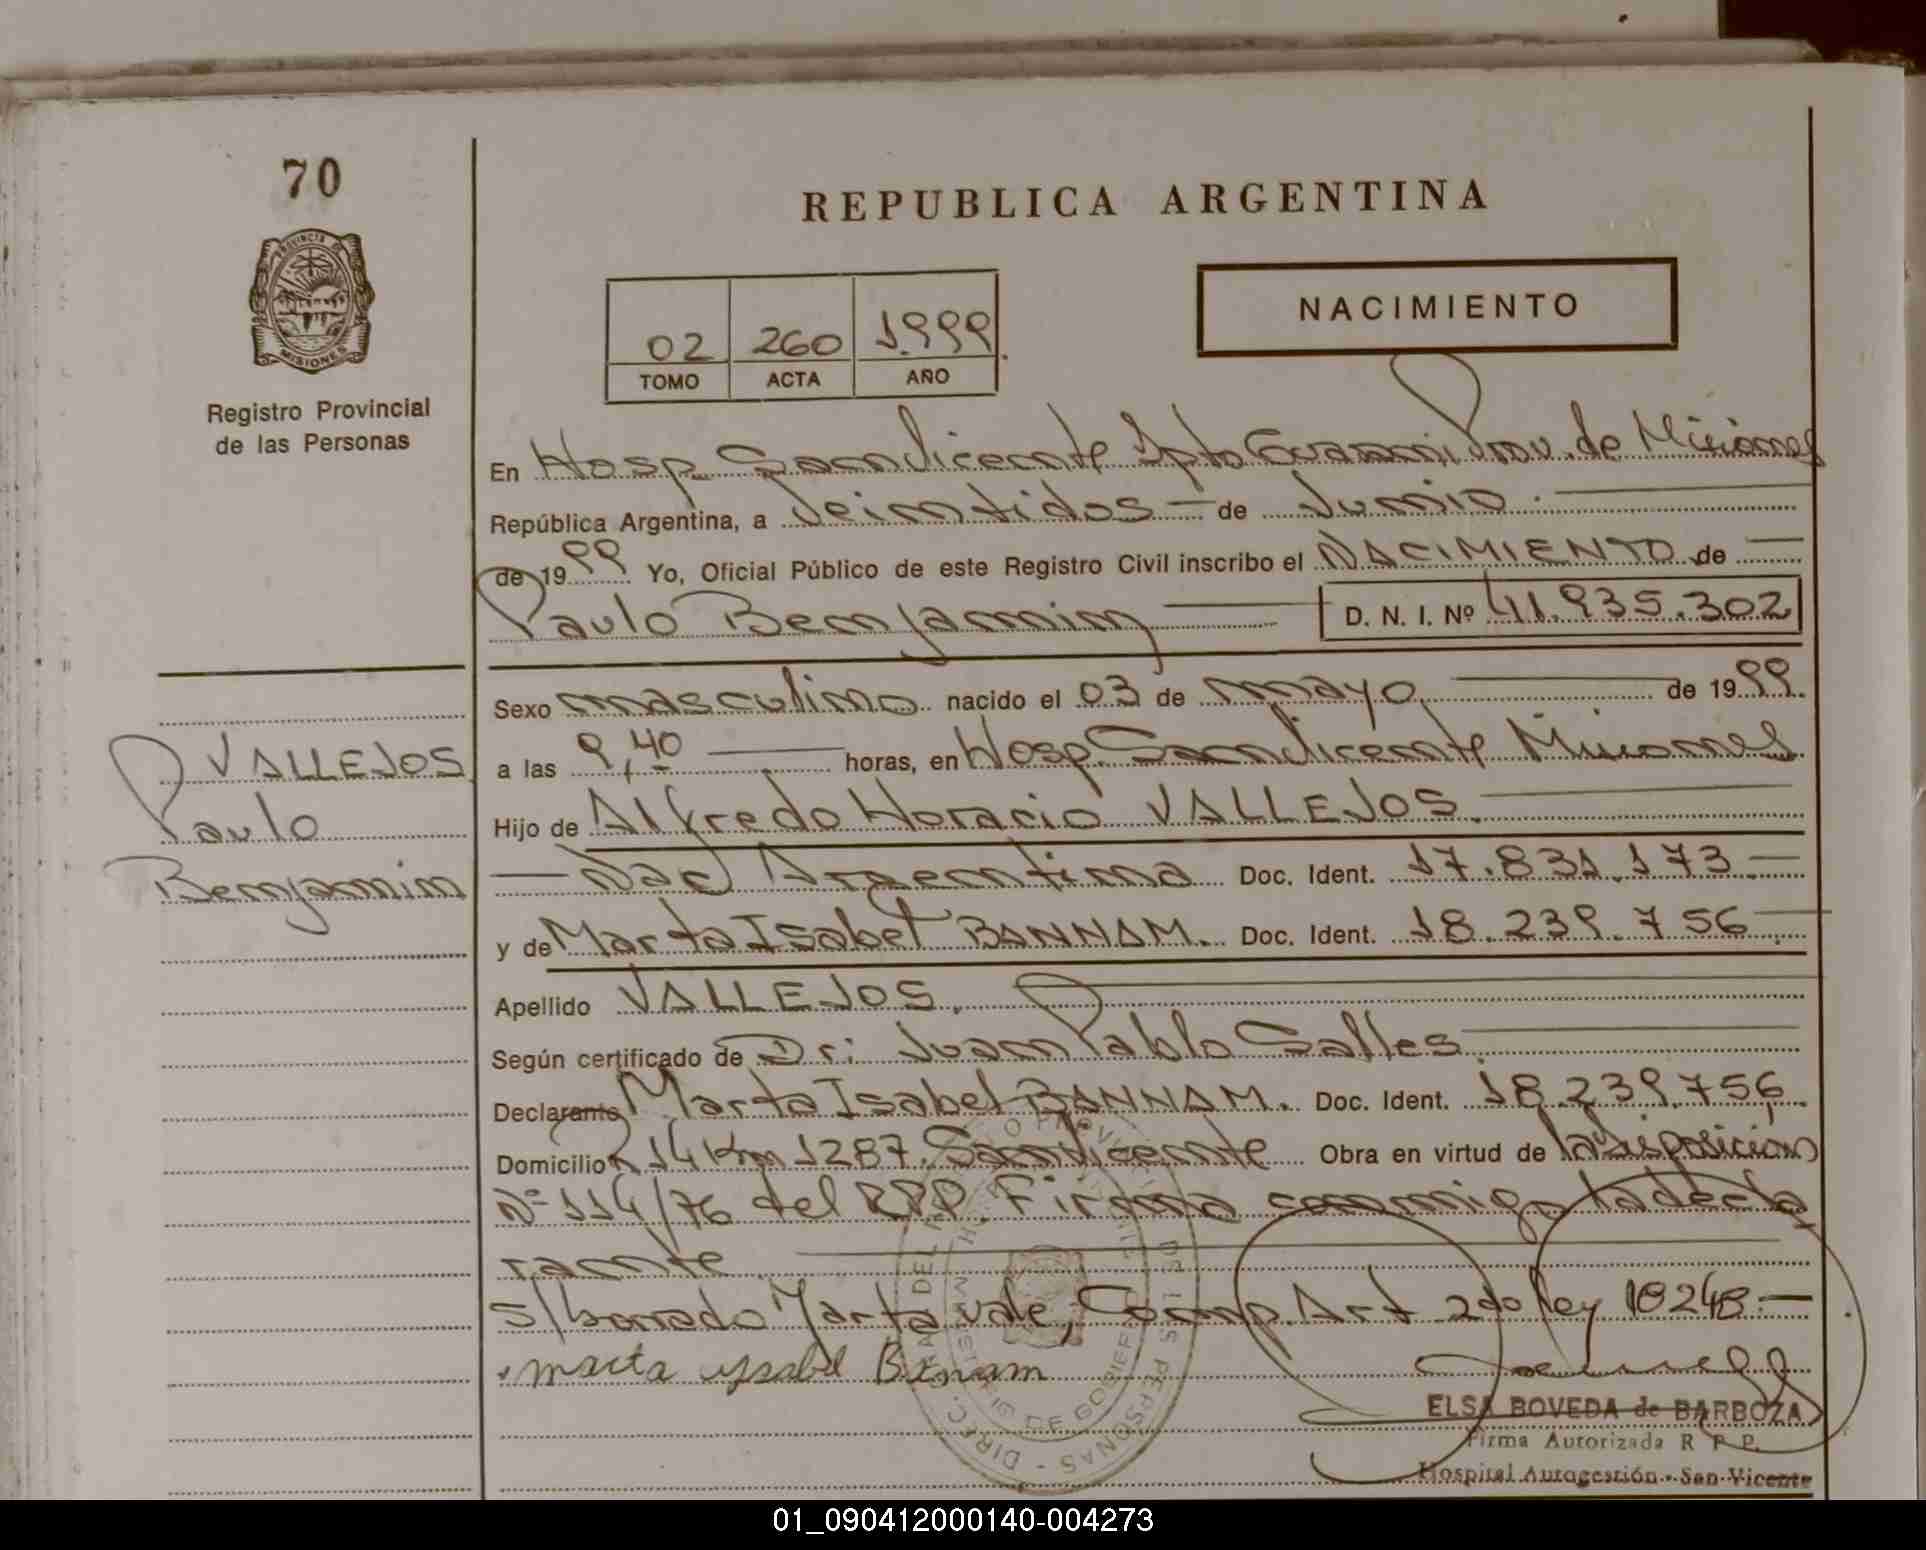 70
REPUBLICA ARGENTINA
PROVINCIA DE
MISIONES
Registro Provincial
de las Personas
02 260 1.999
TOMO ACTA AÑO
NACIMIENTO
En Hosp. San Vicente Dpto Guarani Prov. de Misiones
República Argentina, a Veintidos de Junio
de 1999 Yo, Oficial Público de este Registro Civil inscribo el NACIMIENTO de
Paulo Benjamin D. N. I. Nº 41.935.302
Sexo masculino nacido el 03 de mayo de 1999.
a las 9,40 horas, en Hosp. San Vicente Misiones
Hijo de Alfredo Horacio VALLEJOS.
Nac Argentina Doc. Ident. 17.831.173
y de Marta Isabel BANNAM. Doc. Ident. 18.239.756
Apellido VALLEJOS.
Según certificado de Dr: Juan Pablo Salles.
Declarante Marta Isabel BANNAM. Doc. Ident. 18.239.756
Domicilio R 14 Km 1287. San Vicente Obra en virtud de la disposición
Nº 114/76 del RPP. Firma conmigo la decla
rante
s/borrado Marta vale, Comp. Art 2do ley 18248.
marta ysabel Benam
VALLEJOS
Paulo
Benjamin
ELSA BOVEDA de BARBOZA
Firma Autorizada R P P.
Hospital Autogestión - San Vicente
01_090412000140-004273